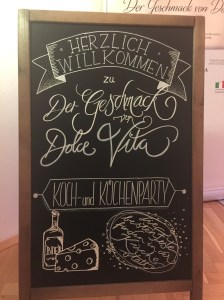 Der Geschmack von D
HERZLICH
WILLKOMMEN
zu
Der Geschmack
von
Dolce Vita
KOCH- und KÜCHENPARTY